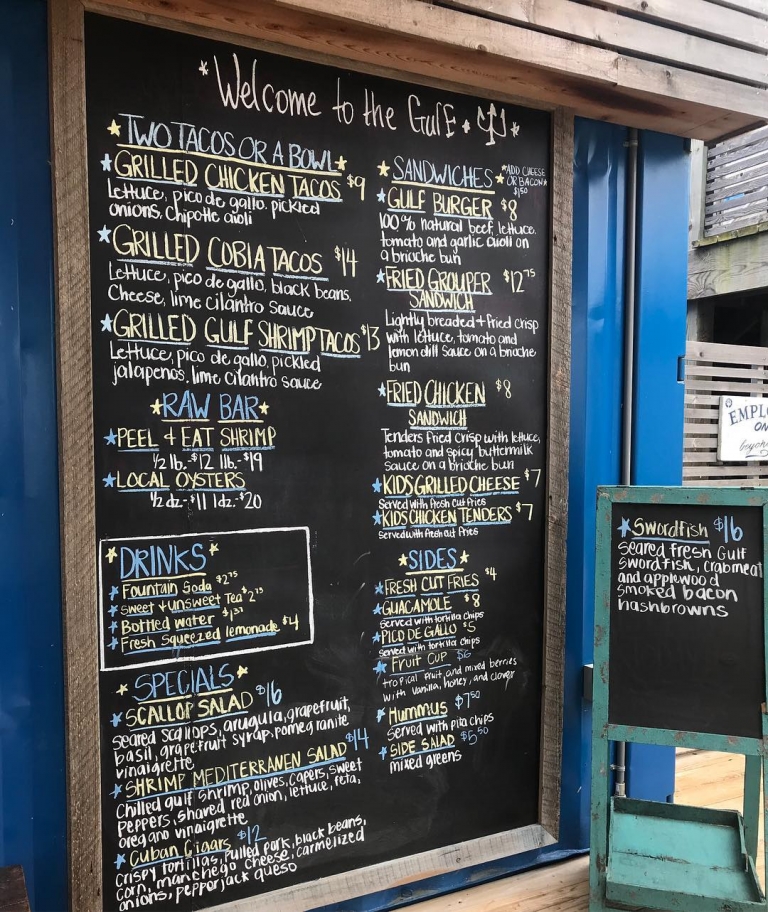 Welcome to the Gulf
TWO TACOS OR A BOWL
GRILLED CHICKEN TACOS $9
Lettuce, pico de gallo, pickled
onions, chipotle aioli
GRILLED COBIA TACOS $14
Lettuce, pico de gallo, black beans,
Cheese, lime cilantro sauce
GRILLED GULF SHRIMP TACOS $13
Lettuce, pico de gallo, pickled
jalapenos, lime cilantro sauce
RAW BAR
PEEL + EAT SHRIMP
1/2 lb.-$12 1lb.-$19
LOCAL OYSTERS
1/2 dz.-$11 1dz.-$20
DRINKS
Fountain Soda $2.75
Sweet + unsweet Tea $2.75
Bottled water $1.37
Fresh Squeezed lemonade $4
SPECIALS
SCALLOP SALAD $16
seared scallops, arugula, grapefruit,
basil, grapefruit syrup, pomegranite
vinaigrette
SHRIMP MEDITERRANEN SALAD $14
Chilled gulf shrimp, olives, capers, sweet
peppers, shaved red onion, lettuce, feta,
oregano vinaigrette
Cuban Cigars $12
crispy tortillas, pulled pork, black beans,
corn, manchego cheese, carmelized
onions, pepperjack queso
SANDWICHES
ADD CHEESE
OR BACON
$1.50
GULF BURGER $8
100% natural beef, lettuce,
tomato and garlic aioli on
a brioche bun
FRIED GROUPER $12.75
SANDWICH
Lightly breaded + fried crisp
with lettuce, tomato and
lemon dill sauce on a brioche
bun
FRIED CHICKEN $8
SANDWICH
Tenders fried crisp with lettuce,
tomato and spicy buttermilk
sauce on a brioche bun
KIDS GRILLED CHEESE $7
Served with fresh cut fries
KIDS CHICKEN TENDERS $7
served with fresh cut fries
SIDES
FRESH CUT FRIES $4
GUACAMOLE $8
Served with tortilla chips
PICO DE GALLO $5
served with tortilla chips
Fruit Cup $6
tropical fruit and mixed berries
with vanilla, honey, and clover
Hummus $7.50
served with pita chips
SIDE SALAD $5.50
mixed greens
EMPLO
ON
beyon
Swordfish $16
seared fresh Gulf
swordfish, crabmeat
and applewood
smoked bacon
hashbrowns